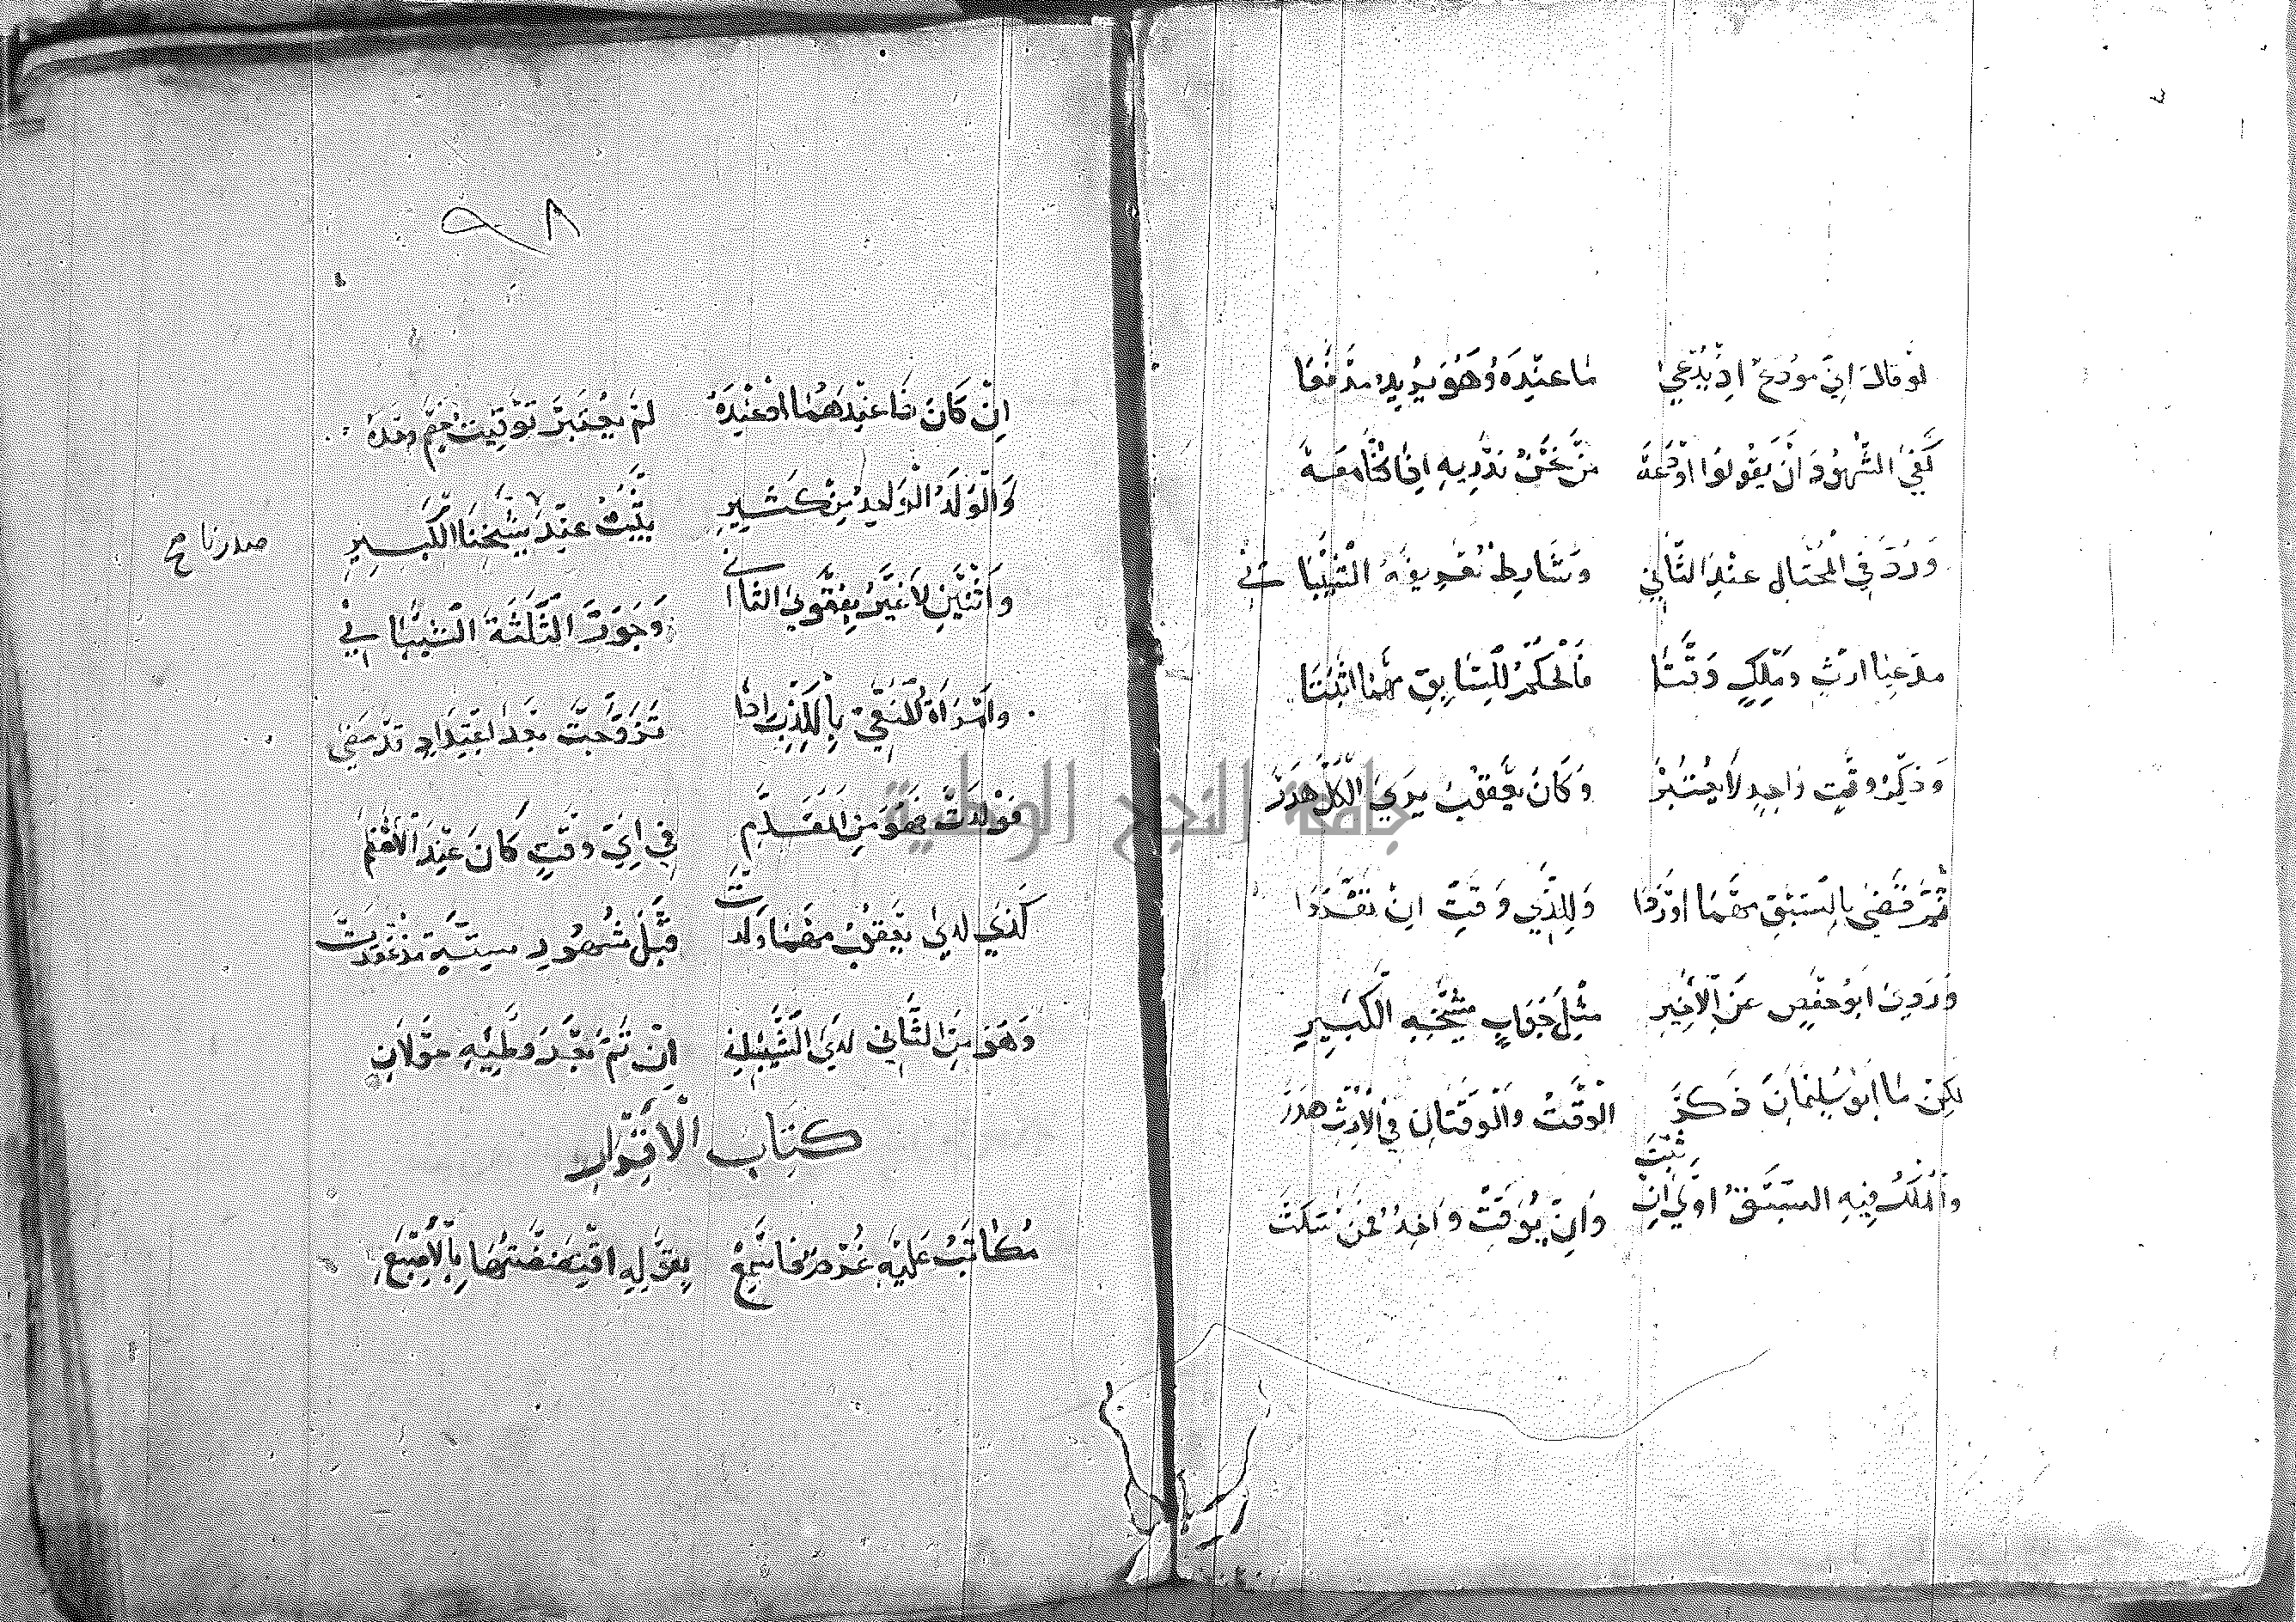 لَوْ قَالَ اِنِّي مُودَعٌ اِذْ يُدَّعَى مَا عِنْدَهُ وَهُوَ يُرِيدُ مَدْفَعَا
كَفَى الشُّهُودَ اَنْ يَقُولُوا اَوْدَعَهْ مَنْ نَحْنُ نَدْرِيهِ اِذَا كُنَّا مَعَهْ
وَرُدَّ فِي الْمُحْتَالِ عِنْدَ الثَّانِي وَشَارِطٌ تَعْرِيفَهُ الشَّيْبَانِي
مُدَّعِيَا اِرْثٍ وَمِلْكٍ وَقَّتَا فَالْحُكْمُ لِلسَّابِقِ مَهْمَا اَثْبَتَا
وَذِكْرُ وَقْتٍ وَاحِدٍ لَا يُعْتَبَرْ وَكَانَ يَعْقُوبُ يَرَى الْكُلَّ هَدَرْ
ثُمَّ قَضَى بِالسَّبْقِ مَهْمَا اَوْرَدَا وَلِلَّذِي وَقَّتَ اِنْ تَفَرَّدَا
وَرَوَى اَبُو حَفْصٍ عَنِ الْاَخِيرِ مِثْلَ جَوَابِ شَيْخِهِ الْكَبِيرِ
لَكِنْ مَا اَبُو سُلَيْمَانَ ذَكَرْ الْوَقْتُ وَالْوَقْتَانِ فِي الْاِرْثِ هَدَرْ
وَالْمِلْكُ فِيهِ السَّبْقُ اَوْلَى اِنْ ثَبَتْ وَاِنْ يُوَقِّتْ وَاحِدٌ فَمَنْ سَكَتْ
٩٨
اِنْ كَانَ ذَا عِنْدَهُمَا اَوْ عِنْدَهُ لَمْ يُعْتَبَرْ تَوْقِيتُ خَصْمٍ وَحْدَهُ
وَالْوَلَدُ الْوَاحِدُ مِنْ كَثِيرِ يَثْبُتُ عِنْدَ شَيْخِنَا الْكَبِيرِ
صدرنا صح
وَاثْنَيْنِ لَا غَيْرُ بِفَتْوَى الثَّانِي وَجَوَّزَ الثَّلَثَةَ الشَّيْبَانِي
وَامْرَاَةُ الْمَنْعِيِّ بِالْكِذْبِ اِذَا تَزَوَّجَتْ بَعْدَ اعْتِدَادٍ قَدْ مَضَى
فَوَلَدَتْ فَهْوَ مِنَ الْمُقَدَّمِ فِي اَيِّ وَقْتٍ كَانَ عِنْدَ الْاَعْظَمِ
كَذَى لَدَى يَعْقُوبَ مَهْمَا وَلَدَتْ قَبْلَ شُهُورٍ سِتَّةٍ مُذْ عُقِدَتْ
وَهْوَ مِنَ الثَّانِي لَدَى الشَّيْبَانِي اِنْ تَمَّ بَعْدَ وَطْئِهِ حَوْلَانِ
كِتَابُ الْاِقْرَارِ
مُكَاتَبٌ عَلَيْهِ غُرْمٌ فَاسْمَعْ بِقَوْلِهِ اقْتَضَضْتُهَا بِالْاِصْبَعِ
جامعة النجاح الوطنية